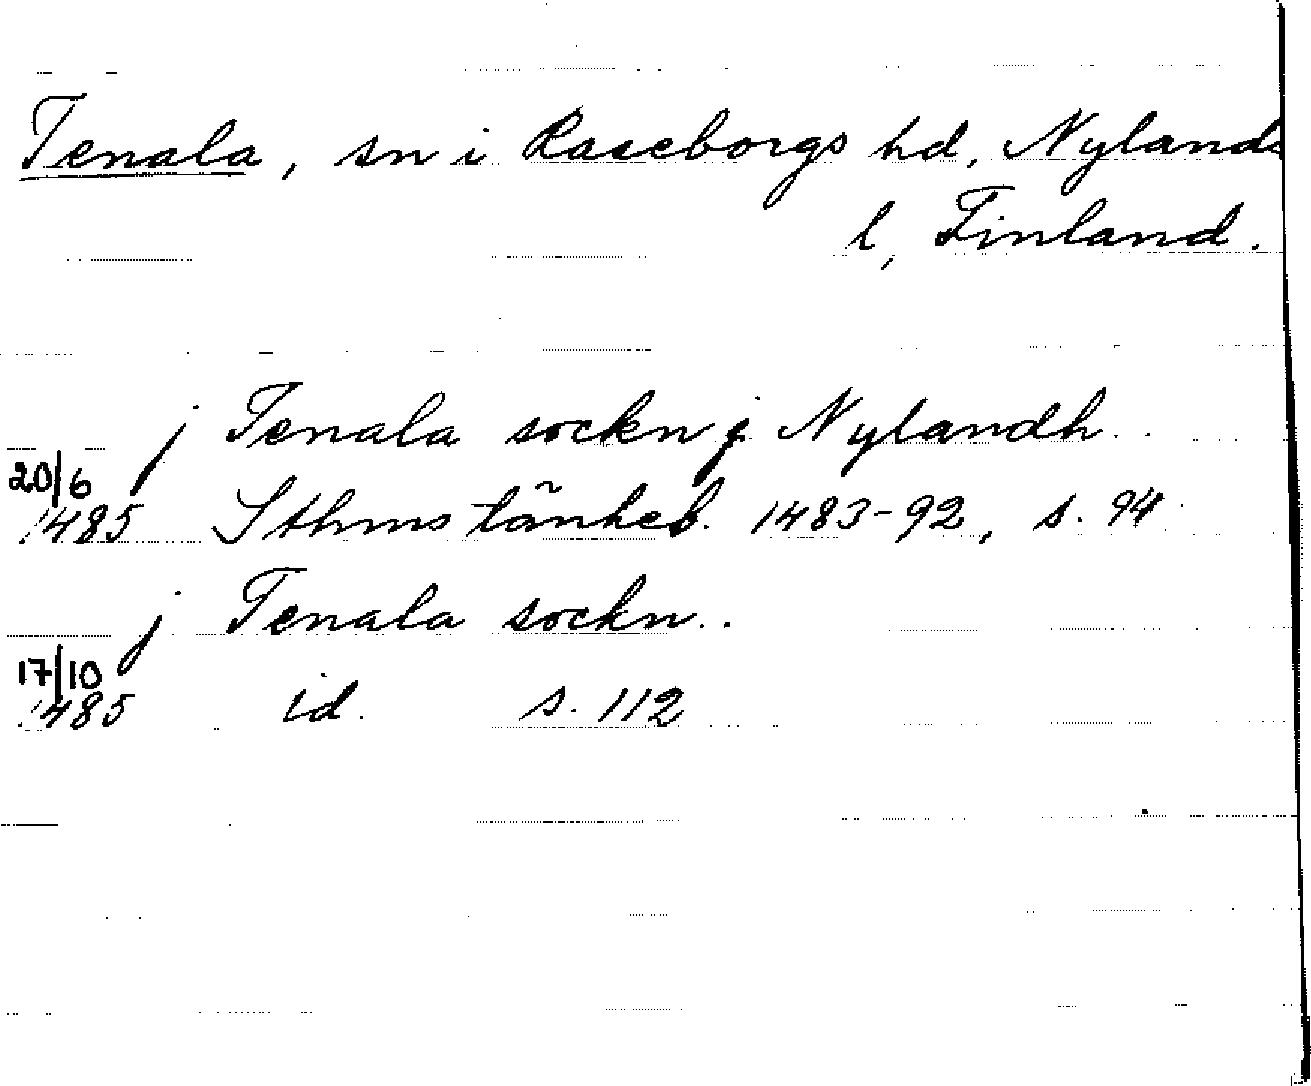 Tenala, sn i Raseborgs hd, Nylands
l, Finland.
j Tenala sockn j Nylandh..
20/6
1485 Sthms tänkeb. 1483-92, s. 94
j Tenala sockn..
17/10
1485 id. s. 112